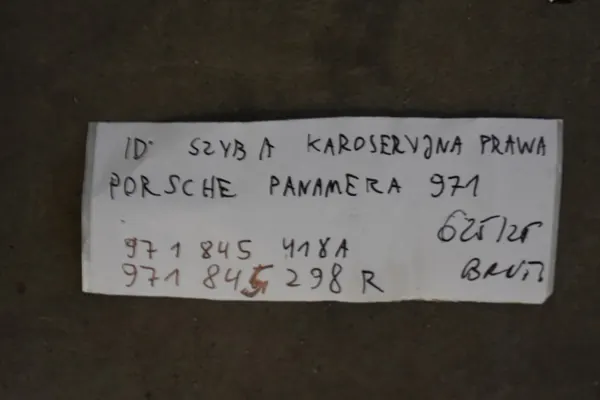 ID: SZYBA KAROSERYJNA PRAWA
PORSCHE PANAMERA 971
971 845 418A
971 845 298 R
625/25